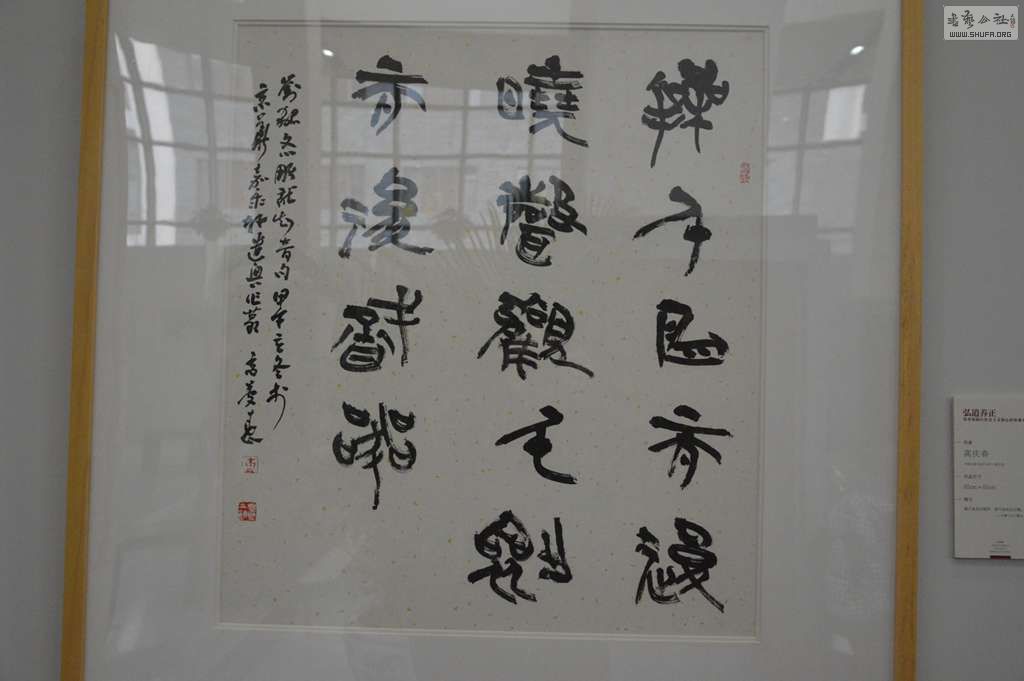 操千曲而後
曉聲觀千劍
而後識器
劉勰文心雕龍知音句 甲午冬於
京華遣興作篆 高慶春
書藝公社
WWW.SHUFA.ORG
弘道养正
高庆春